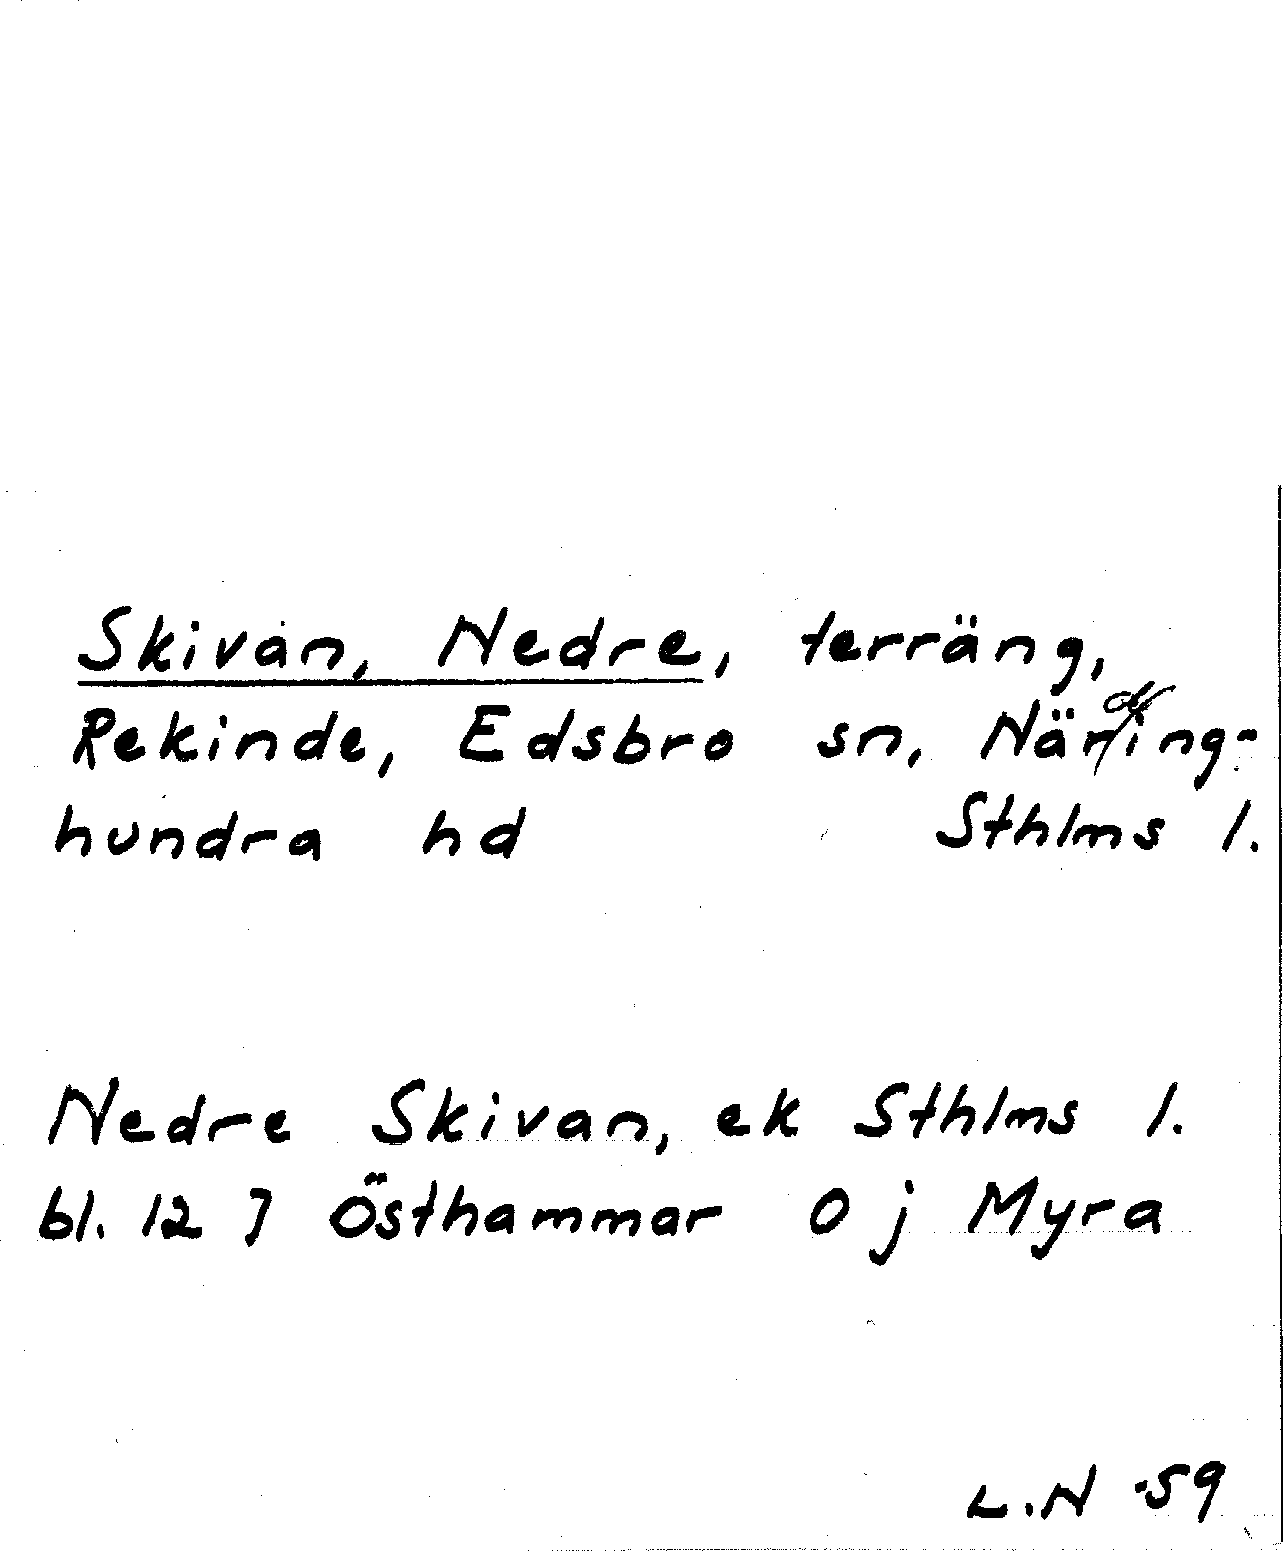 Skivan, Nedre, terräng,
Rekinde, Edsbro sn, Närding-
hundra hd Sthlms l.
Nedre Skivan, ek Sthlms l.
bl. 12 J Östhammar 0 j Myra
L.N -59